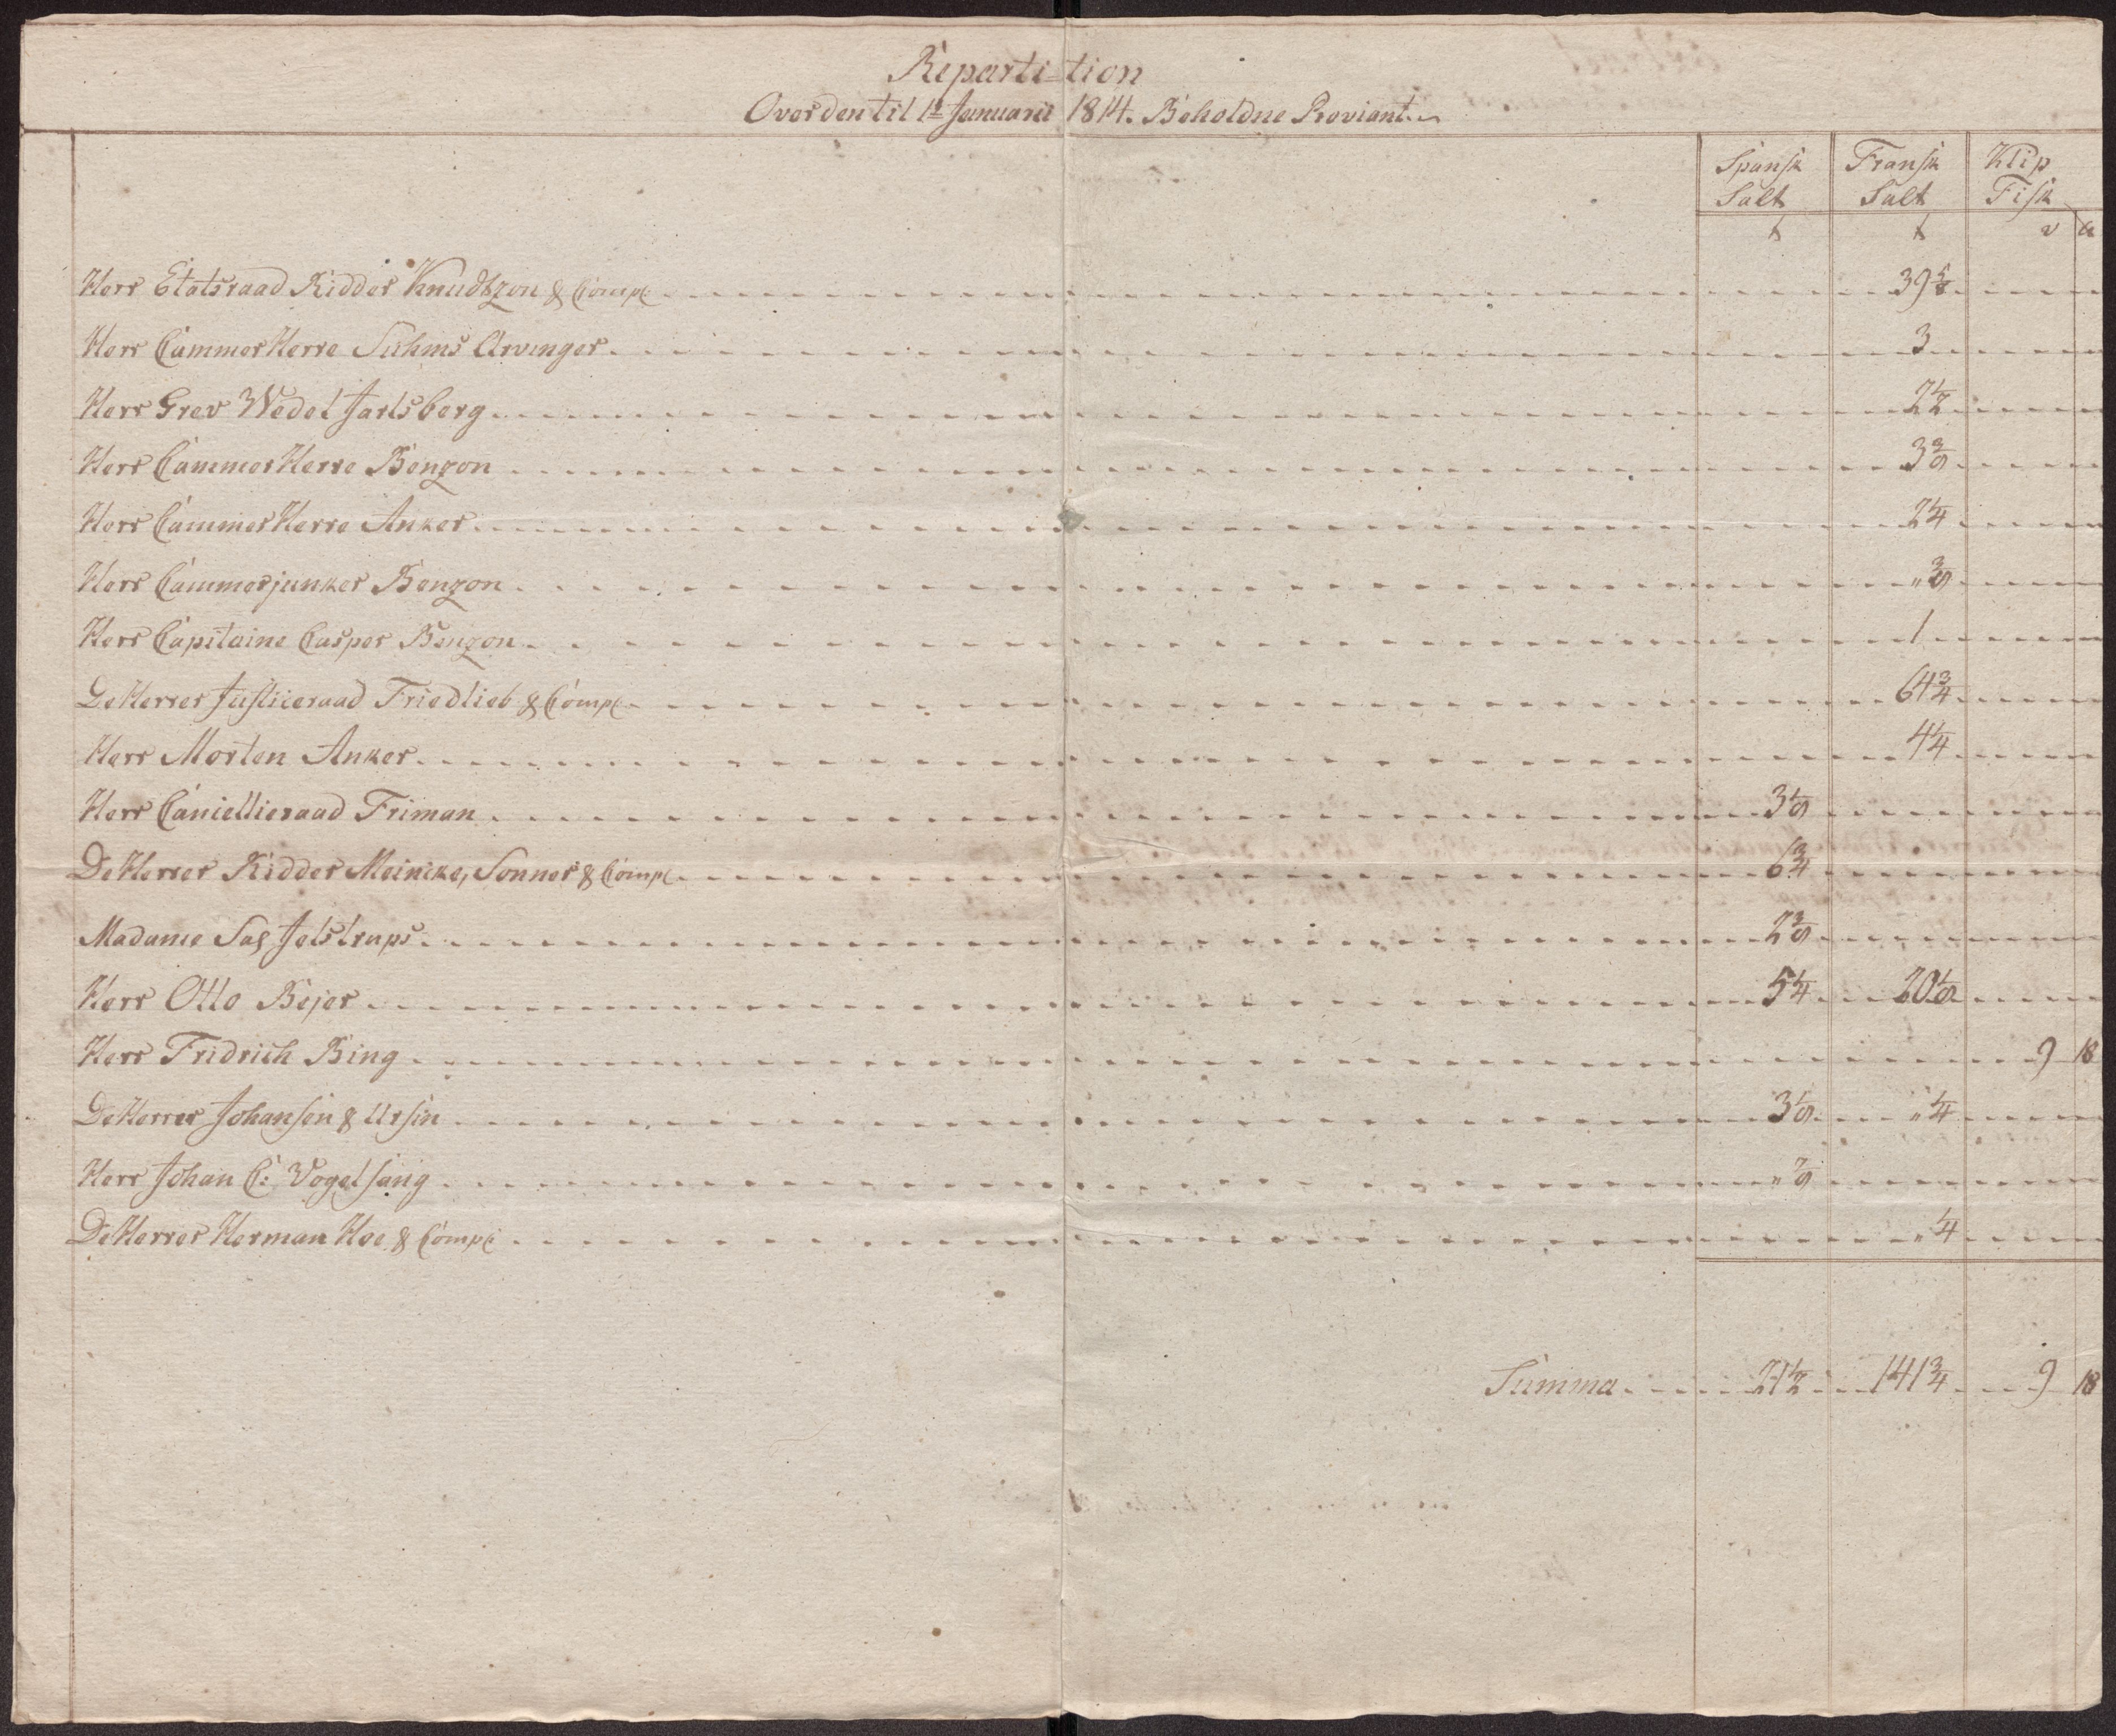 Reparti-tion
Over den til 1ste Januarii 1814. Beholdne Proviant.
Spansk Salt Fransk Salt Klip Fisk
Herr Etatsraad Ridder Knudtzon & Comp: 39 5/8
Herr Cammer Herre Suhms Arvinger 3
Herr Grev Wedel Jarlsberg 2 1/2
Herr Cammer Herre Benzon 3 3/8
Herr Cammer Herre Anker 2 1/4
Herr Cammerjunker Benzon " 3/8
Herr Capitaine Casper Benzon 1
De Herrer Justiceraad Friedlieb & Comp: 64 3/4
Herr Morten Anker 4 1/4
Herr Cancellieraad Friman 3 1/8
De Herrer Ridder Meincke, Sonner & Comp: 6 3/4
Madame Sal Jelstrups 2 3/8
Herr Otto Bejer 5 1/4 20 1/8
Herr Fridrich Bing 9 18
De Herrer Johansen & Ursin 3 1/8 " 1/4
Herr Johan C: Vogelsang " 7/8
De Herrer Herman Hoe & Comp: " 1/4
Summa 21 1/2 141 3/4 9 18